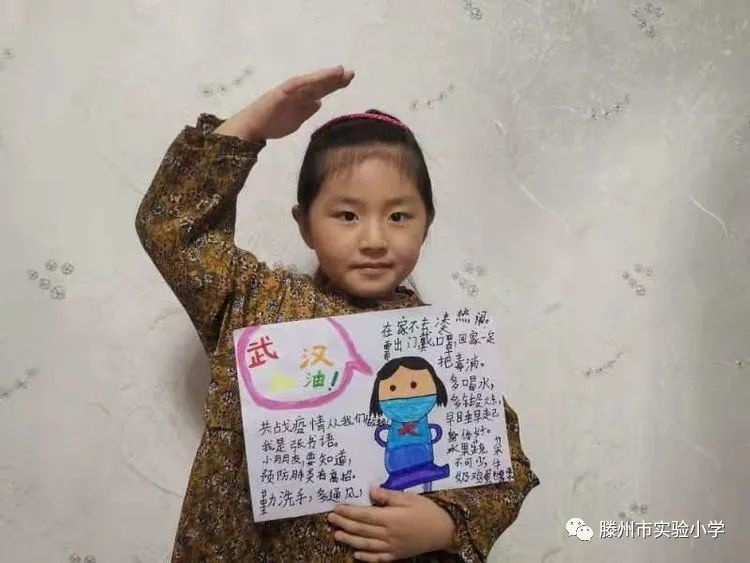 武汉
加油!
共战疫情从我们做起
我是张书语。
小朋友,要知道,
预防肺炎有高招。
勤洗手,多通风,
在家不去凑热闹。
要出门戴口罩,回家一定
把毒消。
多喝水,
多锻炼,
早睡早起
身体好。
水果蔬菜
不可少,牛
奶鸡蛋
滕州市实验小学